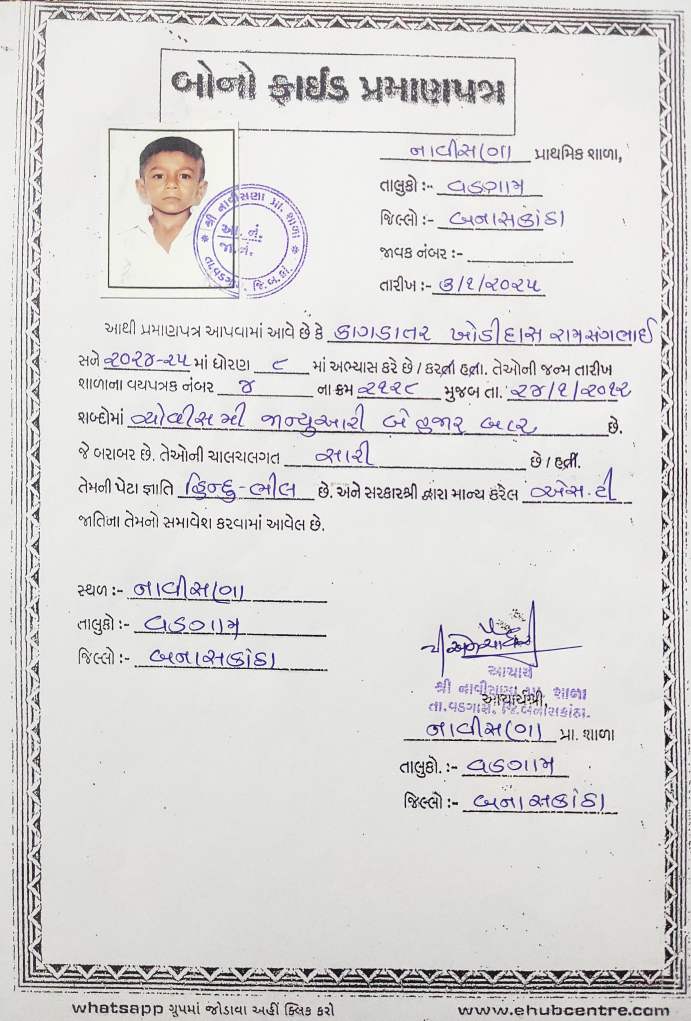 બોનો ફાઈડ પ્રમાણપત્ર
નાવીસણા પ્રાથમિક શાળા,
તાલુકો :- વડગામ
જિલ્લો :- બનાસકાંઠા
જાવક નંબર :-
તારીખ :- ૩/૧/૨૦૨૫
શ્રી નાવીસણા પ્રા. શાળા
આ. નં.
જા. નં.
તા.વડગામ, જિ.બ.કાં.
આથી પ્રમાણપત્ર આપવામાં આવે છે કે કાગડાતર ખોડીદાસ રામસંગભાઈ
સને ૨૦૨૪-૨૫ માં ધોરણ ૮ માં અભ્યાસ કરે છે / કરતી હતા. તેઓની જન્મ તારીખ
શાળાના વયપત્રક નંબર ૪ ના ક્રમ ૨૧૨૮ મુજબ તા. ૨૪/૧/૨૦૧૨
શબ્દોમાં ચોવીસમી જાન્યુઆરી બે હજાર બાર છે.
જે બરાબર છે. તેઓની ચાલચલગત સારી છે / હતી.
તેમની પેટા જ્ઞાતિ હિન્દુ-ભીલ છે. અને સરકારશ્રી દ્વારા માન્ય કરેલ એસ.ટી
જાતિના તેમનો સમાવેશ કરવામાં આવેલ છે.
સ્થળ :- નાવીસણા
તાલુકો :- વડગામ
જિલ્લો :- બનાસકાંઠા
આચાર્ય
શ્રી નાવીસણા પ્રા. શાળા
તા.વડગામ, જિ.બનાસકાંઠા.
આચાર્યશ્રી,
નાવીસણા પ્રા. શાળા
તાલુકો. :- વડગામ
જિલ્લો :- બનાસકાંઠા
whatsapp ગ્રુપમાં જોડાવા અહીં ક્લિક કરો www.ehubcentre.com